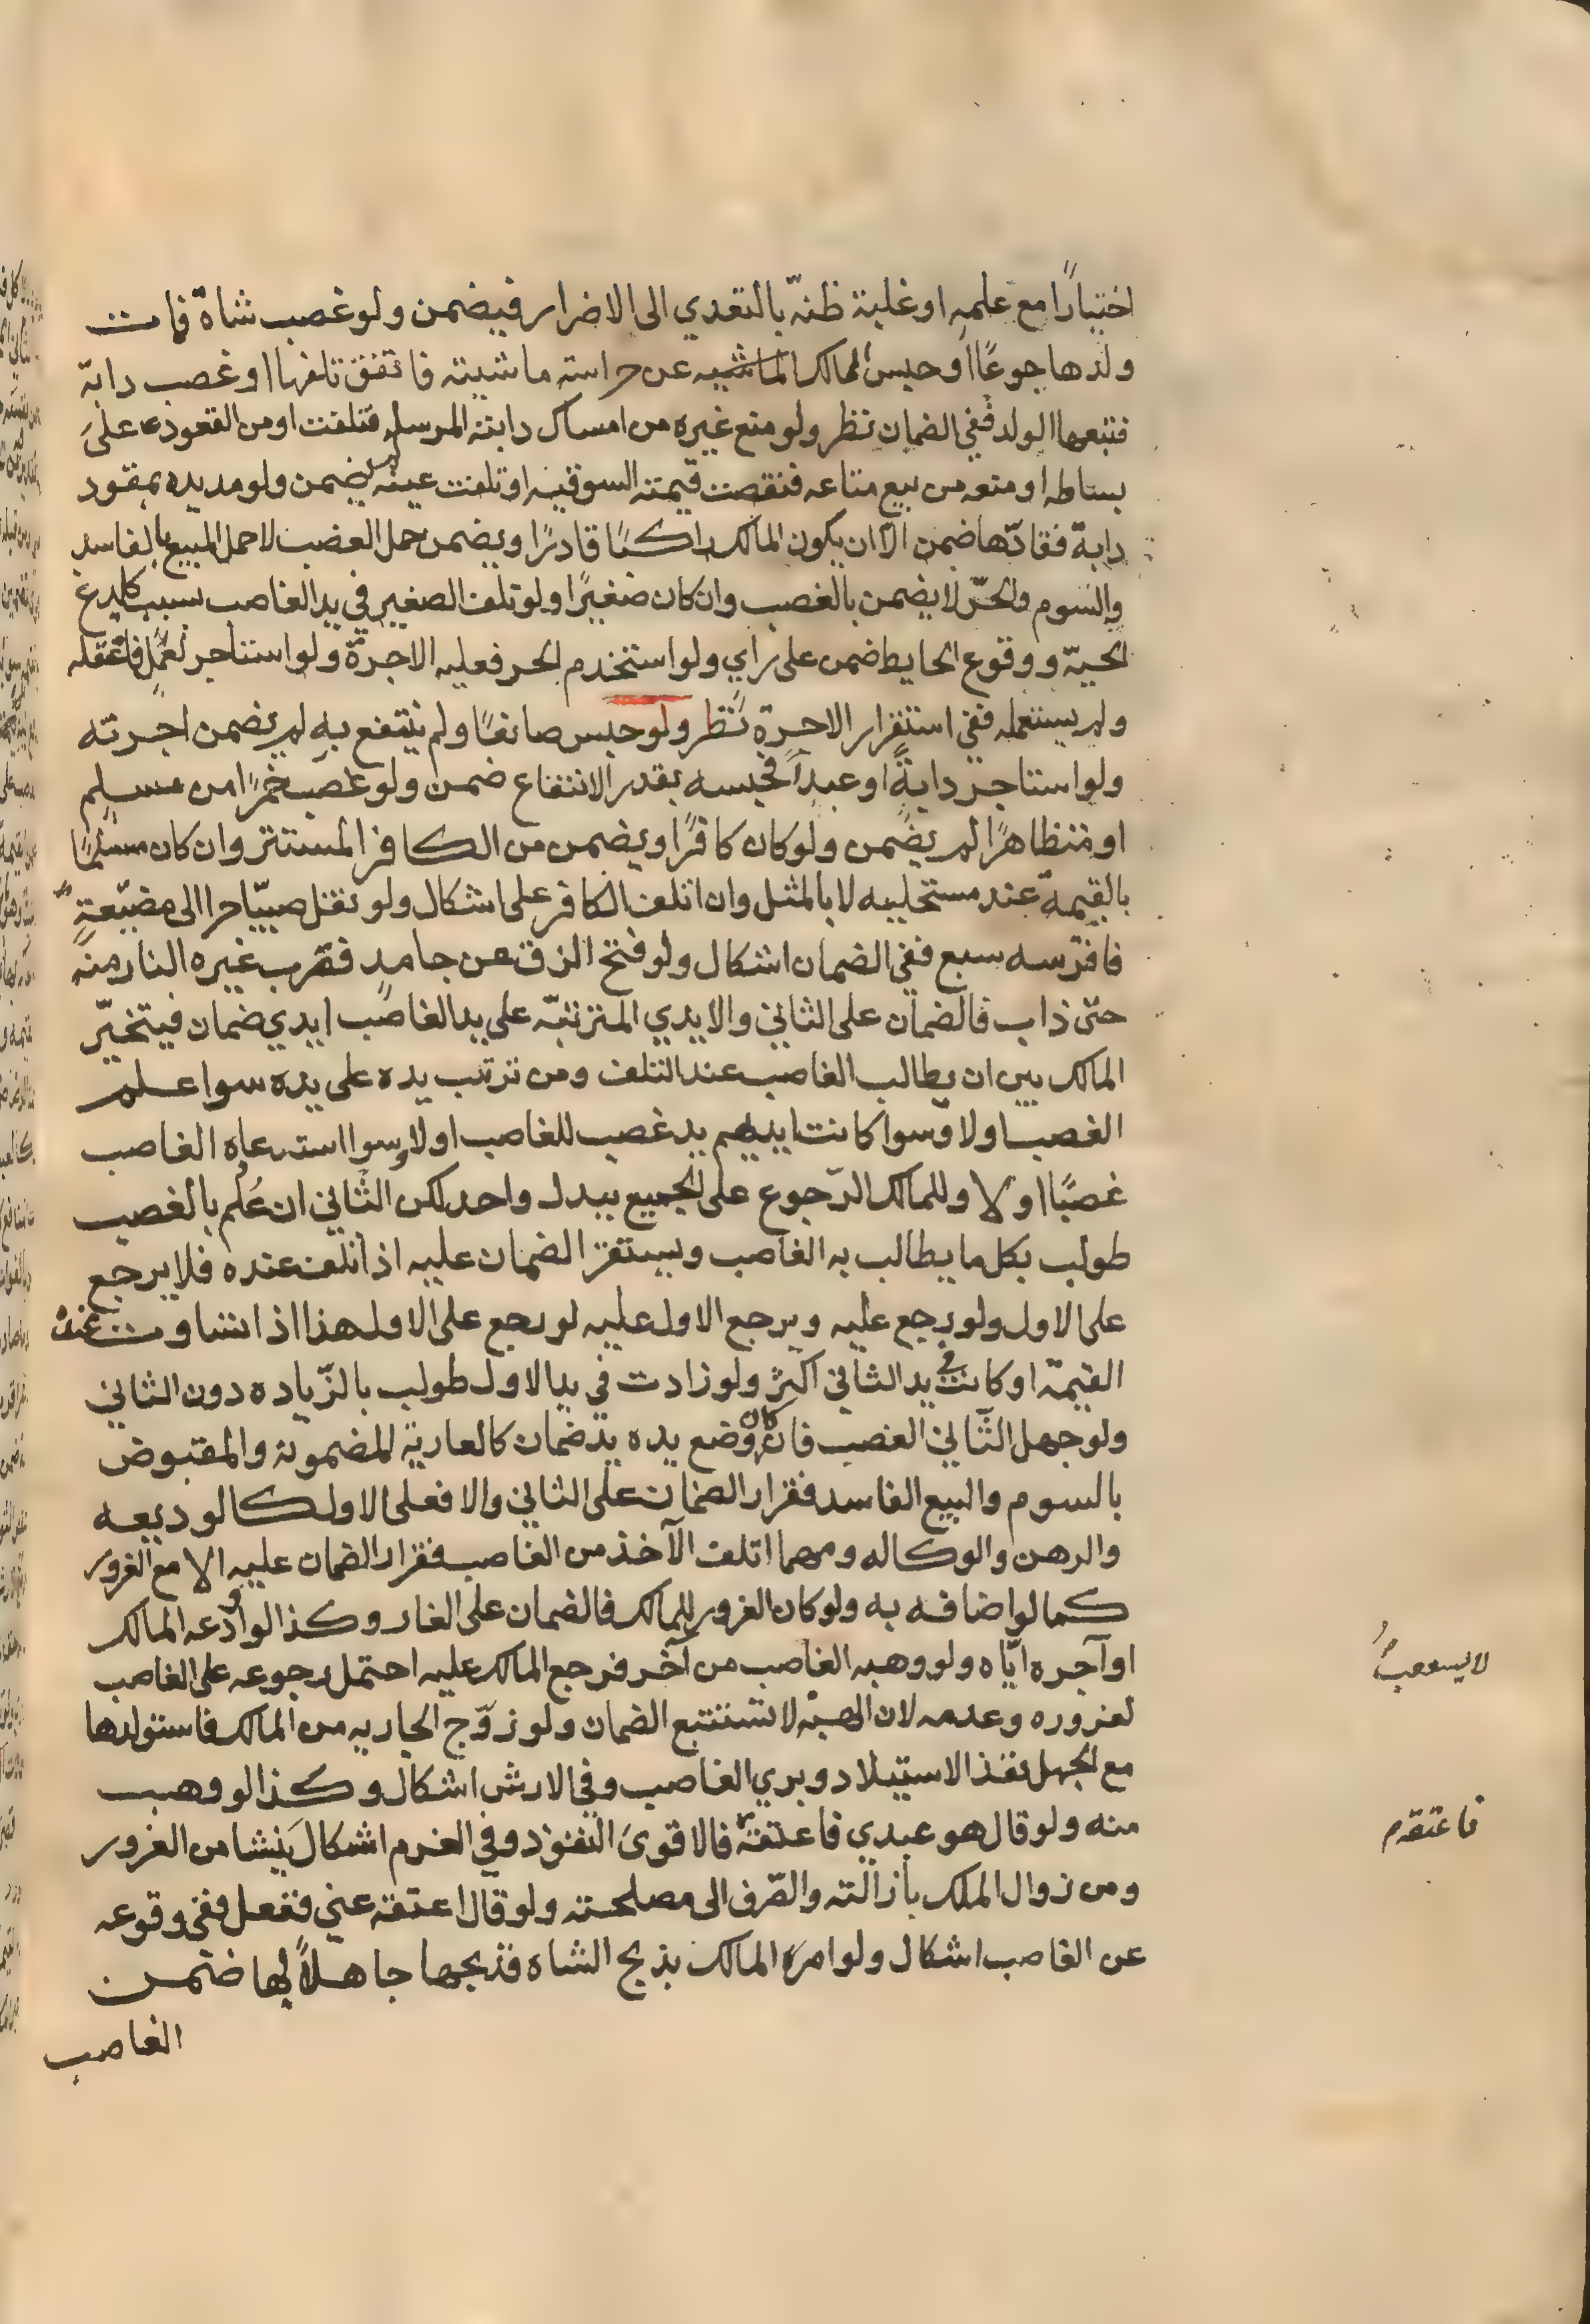 اختيارًا مع علمه او غلبة ظنّه بالتعدي الى الاضرار فيضمن ولو غصب شاة فمات
ولدها جوعًا او حبس المالك الماشيه عن حراسته ماشيته فاتفق تلفها او غصب دابة
فتبعها الولد ففي الضمان نظر ولو منع غيره من امساك دابته المرسله فتلفت او من القعود على
بساطه او منعه من بيع متاعه فنقصت قيمته السوقيه او تلفت عينه لم يضمن ولو مد يده بمقود
دابة فقادها ضمن الا ان يكون المالك راكبًا قادرًا ويضمن حمل الغصب لا حمل المبيع بالفاسد
والسوم والحرّ لا يضمن بالغصب وان كان صغيرًا ولو تلف الصغير في يد الغاصب بسبب كلدغ
الحيّة ووقوع الحايط ضمن على راي ولو استخدم الحر فعليه الاجرة ولو استاجر لعمل فاعتقله
ولم يستعمله ففي استقرار الاجرة نظر ولو حبس صانعًا ولم ينتفع به لم يضمن اجرته
ولو استاجر دابةً او عبداً فحبسه بقدر الانتفاع ضمن ولو غصب خمرًا من مسلم
او متظاهرًا لم يضمن ولو كان كافرًا ويضمن من الكافر المستتر وان كان مسلمًا
بالقيمة عند مستحليه لا بالمثل وان اتلف الكافر على اشكال ولو نقل صبيّا حرا الى مضيّعةٍ
فافترسه سبع ففي الضمان اشكال ولو فتح الزق عن جامد فقرب غيره النار منه
حتى ذاب فالضمان على الثاني والايدي المترتبة على يد الغاصب ايدي ضمان فيتخيّر
المالك بين ان يطالب الغاصب عند التلف ومن ترتب يده على يده سوا علم
الغصب او لا وسوا كانت ايديهم يد غصب للغاصب او لا وسوا استدعاه الغاصب
غصبًا او لا وللمالك الرّجوع على الجميع ببدل واحد لكن الثاني ان علم بالغصب
طولب بكل ما يطالب به الغاصب ويستقر الضمان عليه اذا تلف عنده فلا يرجع
على الاول ولو رجع عليه ويرجع الاول عليه لو رجع على الاول هذا اذا تساوت عنده
القيمة او كانت في يد الثاني اكثر ولو زادت في يد الاول طولب بالزّياده دون الثاني
ولو جهل الثاني الغصب فان كان وضع يده يد ضمان كالعارية المضمونة والمقبوض
بالسوم والبيع الفاسد فقرار الضمان على الثاني والا فعلى الاول كالوديعه
والرهن والوكاله ومهما اتلف الآخذ من الغاصب فقرار الضمان عليه الا مع الغرور
كما لو اضافه به ولو كان الغرور للمالك فالضمان على الغار وكذا لو اودعه المالك
او آجره ايّاه ولو وهبه الغاصب من آخر فرجع المالك عليه احتمل رجوعه على الغاصب
لغروره وعدمه لان الهبة لا تستتبع الضمان ولو زوّج الجاريه من المالك فاستولدها
مع الجهل نفذ الاستيلاد وبري الغاصب وفي الارش اشكال وكذا لو وهب
منه ولو قال هو عبدي فاعتقه فالاقوى النفوذ وفي الغرم اشكال ينشا من الغرور
ومن زوال الملك بازالته والصّرف الى مصلحته ولو قال اعتقه عني ففعل ففي وقوعه
عن الغاصب اشكال ولو امره المالك بذبح الشاه فذبحها جاهلاً بها ضمن
الغاصب
فاعتقه م